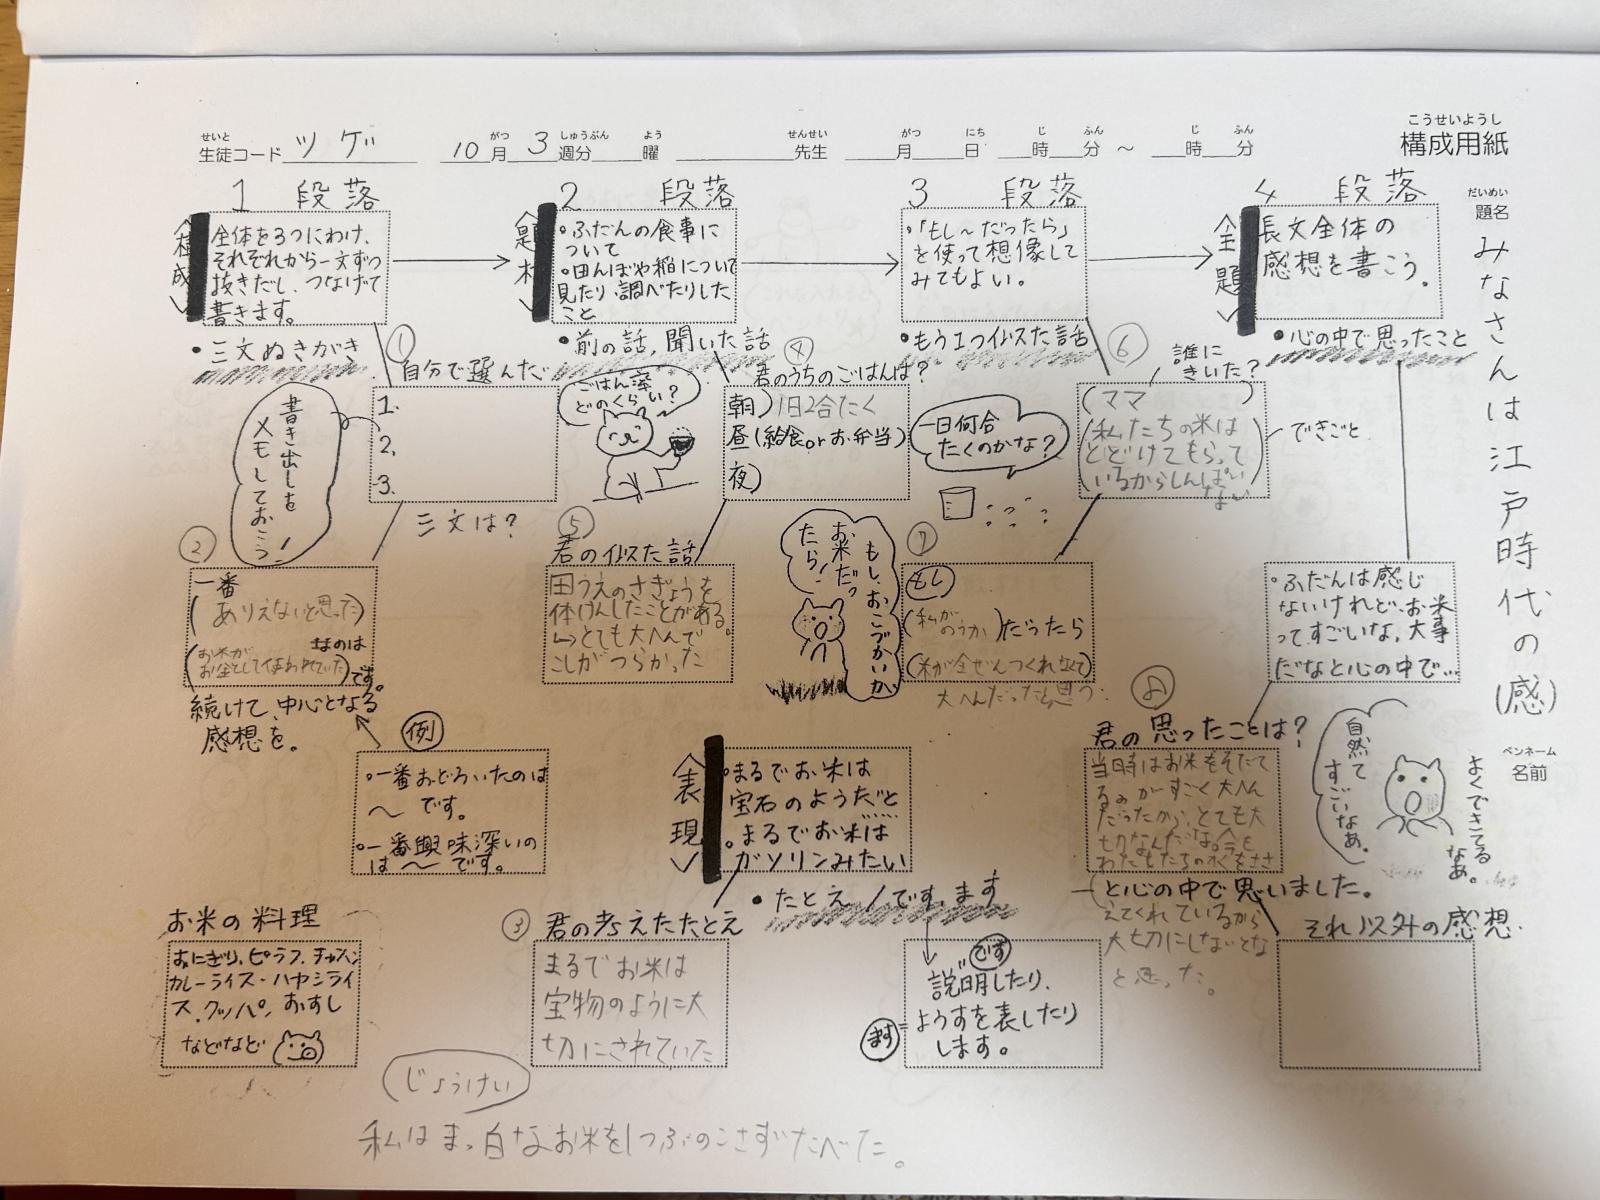 こうせいようし
構成用紙
せいと がつ しゅうぶん よう せんせい がつ にち じ ふん じ ふん
生徒コード ツゲ 10月 3週分 曜 先生 月 日 時 分 ～ 時 分
だいめい
題名
みなさんは江戸時代の(感)
ペンネーム
名前
1 段落
構成
全体を3つにわけ、
それぞれから一文ずつ
抜きだし、つなげて
書きます。
・三文ぬきがき
①
自分で選んだ
1.
2.
3.
三文は?
書き出しを
メモしておこう!
②
一番
(ありえないと思った)
なのは
(お米が
お金としてつかわれていた)です。
続けて、中心となる
感想を。
例
・一番おどろいたのは
～です。
・一番興味深いの
は～～です。
お米の料理
おにぎり、ピラフ、チャーハン
カレーライス・ハヤシライ
ス、クッパ、おすし
などなど
2 段落
題材
・ふだんの食事に
ついて
・田んぼや稲について
見たり、調べたりした
こと
・前の話、聞いた話
ごはん茶
どのくらい?
④
君のうちのごはんは?
朝)1日2合たく
昼(給食orお弁当)
夜)
一日何合
たくのかな?
⑤
君の似た話
田うえのさぎょうを
体けんしたことがある。
↳とても大へんで
こしがつらかった
表現
・まるでお米は
宝石のようだと
・まるでお米は
ガソリンみたい
・たとえ/です、ます
③
君の考えたたとえ
まるでお米は
宝物のように大
切にされていた
です
説明したり、
ます=ようすを表したり
します。
3 段落
・「もし～だったら」
を使って想像して
みてもよい。
・もう1つ似た話
⑥
誰に
きいた?
(ママ)
(私たちの米は
とどけてもらって
いるからしんぱい
ない)
できごと
もし、おこづかいが
お米だっ
たら!
⑦
もし
(私が
のうか)だったら
(米が全ぜんつくれなくて)
大へんだったと思う
4 段落
主題
長文全体の
感想を書こう。
・心の中で思ったこと
・ふだんは感じ
ないけれど、お米
ってすごいな、大事
だなと心の中で…
君の思ったことは?
当時はお米をそだて
るのがすごく大へん
だったから、とても大
切なんだな。今を
わたしたちの水をささ
と心の中で思いました。
えてくれているから
大切にしないとな
と思った。
自然て
すごいなあ。
よくできてる
なあ。
それ以外の感想
じょうけい
私はまっ白なお米を1つぶのこさずたべた。